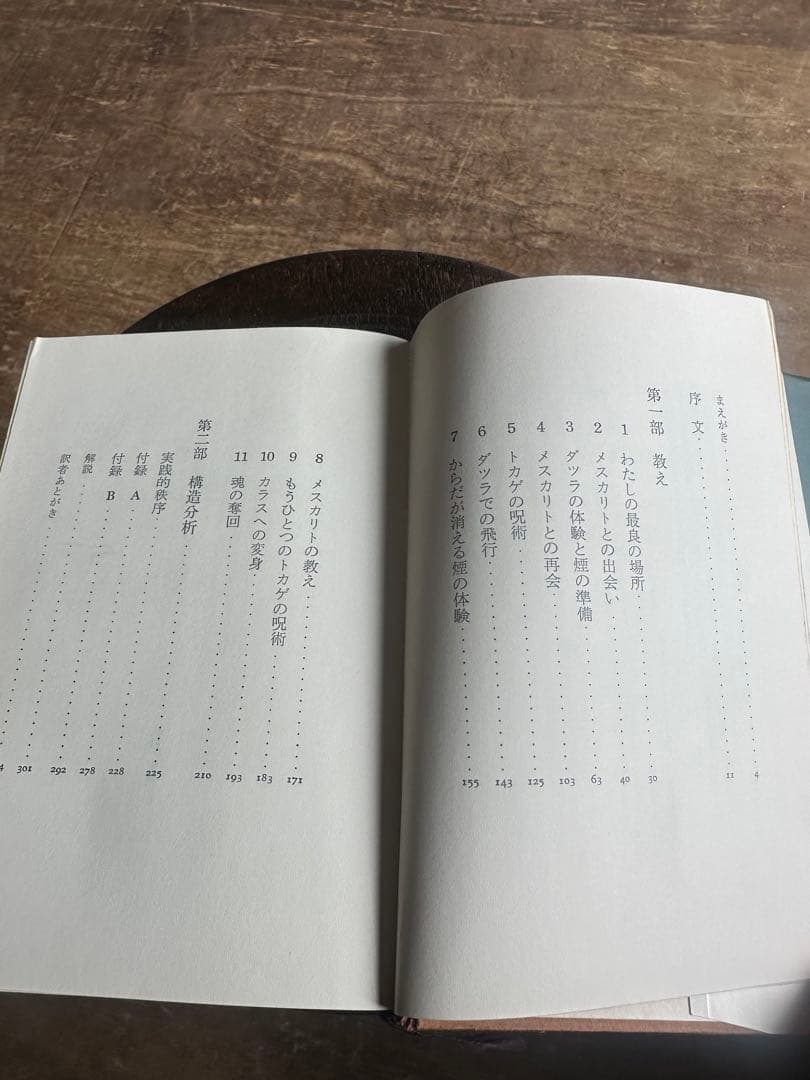 まえがき 4
序文 11
第一部 教え
1 わたしの最良の場所 30
2 メスカリトとの出会い 40
3 ダツラの体験と煙の準備 63
4 メスカリトとの再会 103
5 トカゲの呪術 125
6 ダツラでの飛行 143
7 からだが消える煙の体験 155
8 メスカリトの教え 171
9 もうひとつのトカゲの呪術 183
10 カラスへの変身 193
11 魂の奪回 210
第二部 構造分析 225
実践的秩序 228
付録 A 278
付録 B 292
解説 301
訳者あとがき